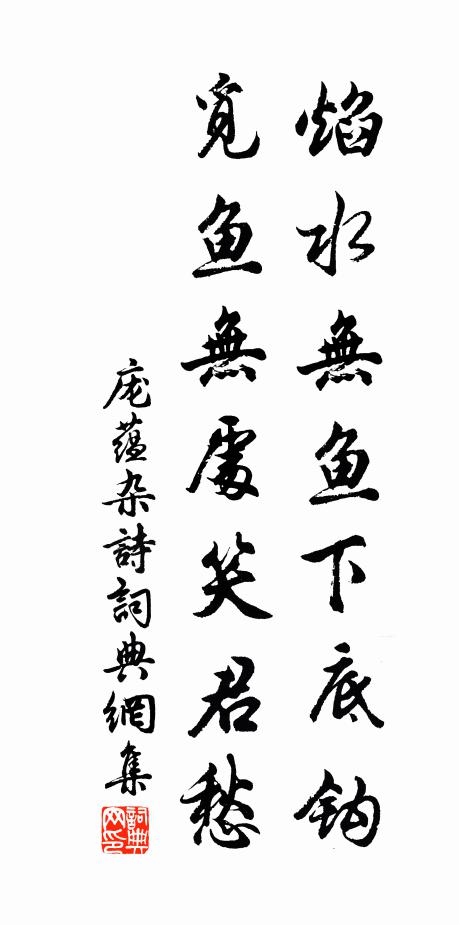 焰水無鱼下底钩
覓鱼無處笑君愁
庞蕴杂詩詞典網集
詞典网印